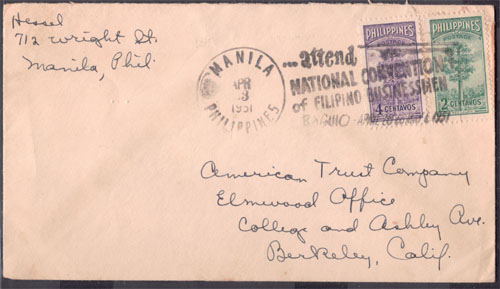 Hessel
712 Wright St.
Manila, Phil.
MANILA
APR
3
1951
PHILIPPINES
...Attend
NATIONAL CONVENTION
of FILIPINO BUSINESSMEN
BAGUIO
PHILIPPINES
POSTAGE
4 CENTAVOS
PHILIPPINES
POSTAGE
2 CENTAVOS
American Trust Company
Elmwood Office
College and Ashley Ave.
Berkeley, Calif.